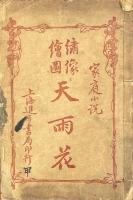 家庭小説
繡像
繪圖
天雨花
上海進步書局印行
甲